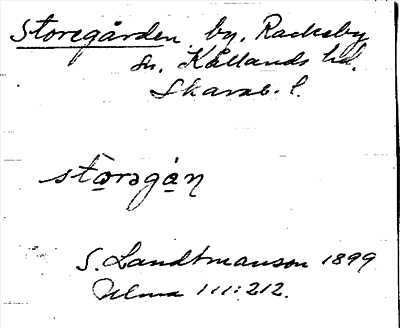 Storegården by, Rackeby
sn. Kållands hd.
Skarab. l.
storəgán
S. Landtmanson 1899
Ulma 111:212.